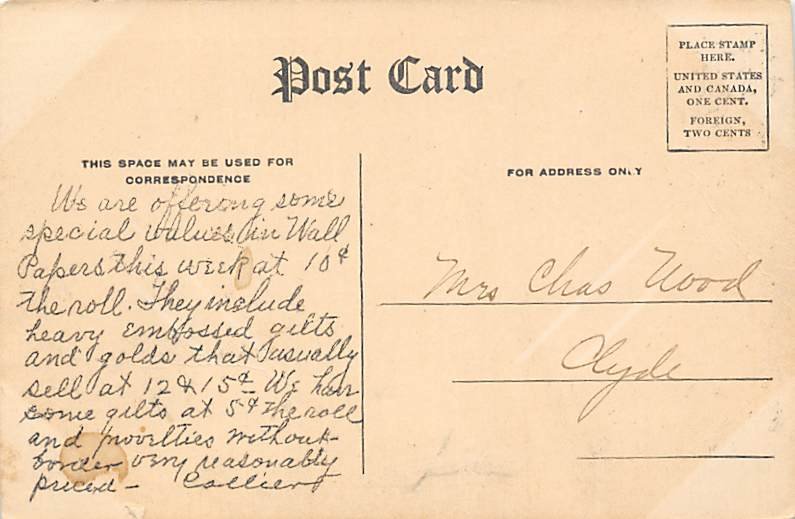 Post Card
PLACE STAMP
HERE.
UNITED STATES
AND CANADA,
ONE CENT.
FOREIGN,
TWO CENTS
THIS SPACE MAY BE USED FOR
CORRESPONDENCE
We are offering some
special values in Wall
Papers this week at 10¢
the roll. They include
heavy embossed gilts
and golds that usually
sell at 12 & 15¢ We have
some gilts at 5¢ the roll
and novelties without
border very reasonably
priced - Colliers
FOR ADDRESS ONLY
Mrs Chas Wood
Clyde